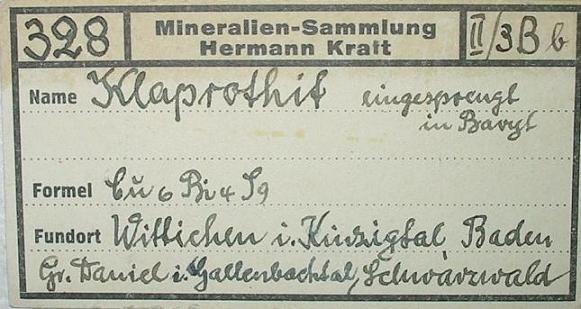 328
Mineralien-Sammlung
Hermann Kraft
II/3Bb
Name Klaprothit eingesprengt
in Baryt
Formel Cu6 Bi4 S9
Fundort Wittichen i. Kinzigtal Baden
Gr. Daniel i. Gallenbachtal, Schwarzwald